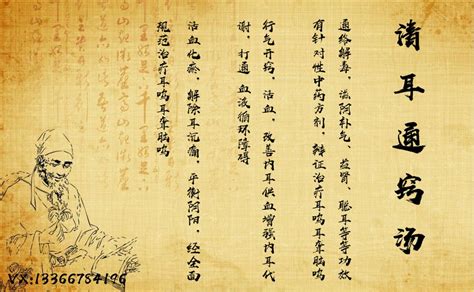 清耳通窍汤
通络解毒，滋阴朴气，益肾，聪耳等等功效
有针对性中药方剂，辩证治疗耳鸣耳聋脑鸣
行气开窍，活血，改善内耳供血增强内耳代
谢，打通血液循环障碍
活血化瘀，解除耳沉痛，平衡阴阳，经全面
规范治疗耳鸣耳聋脑鸣
VX:13366784196